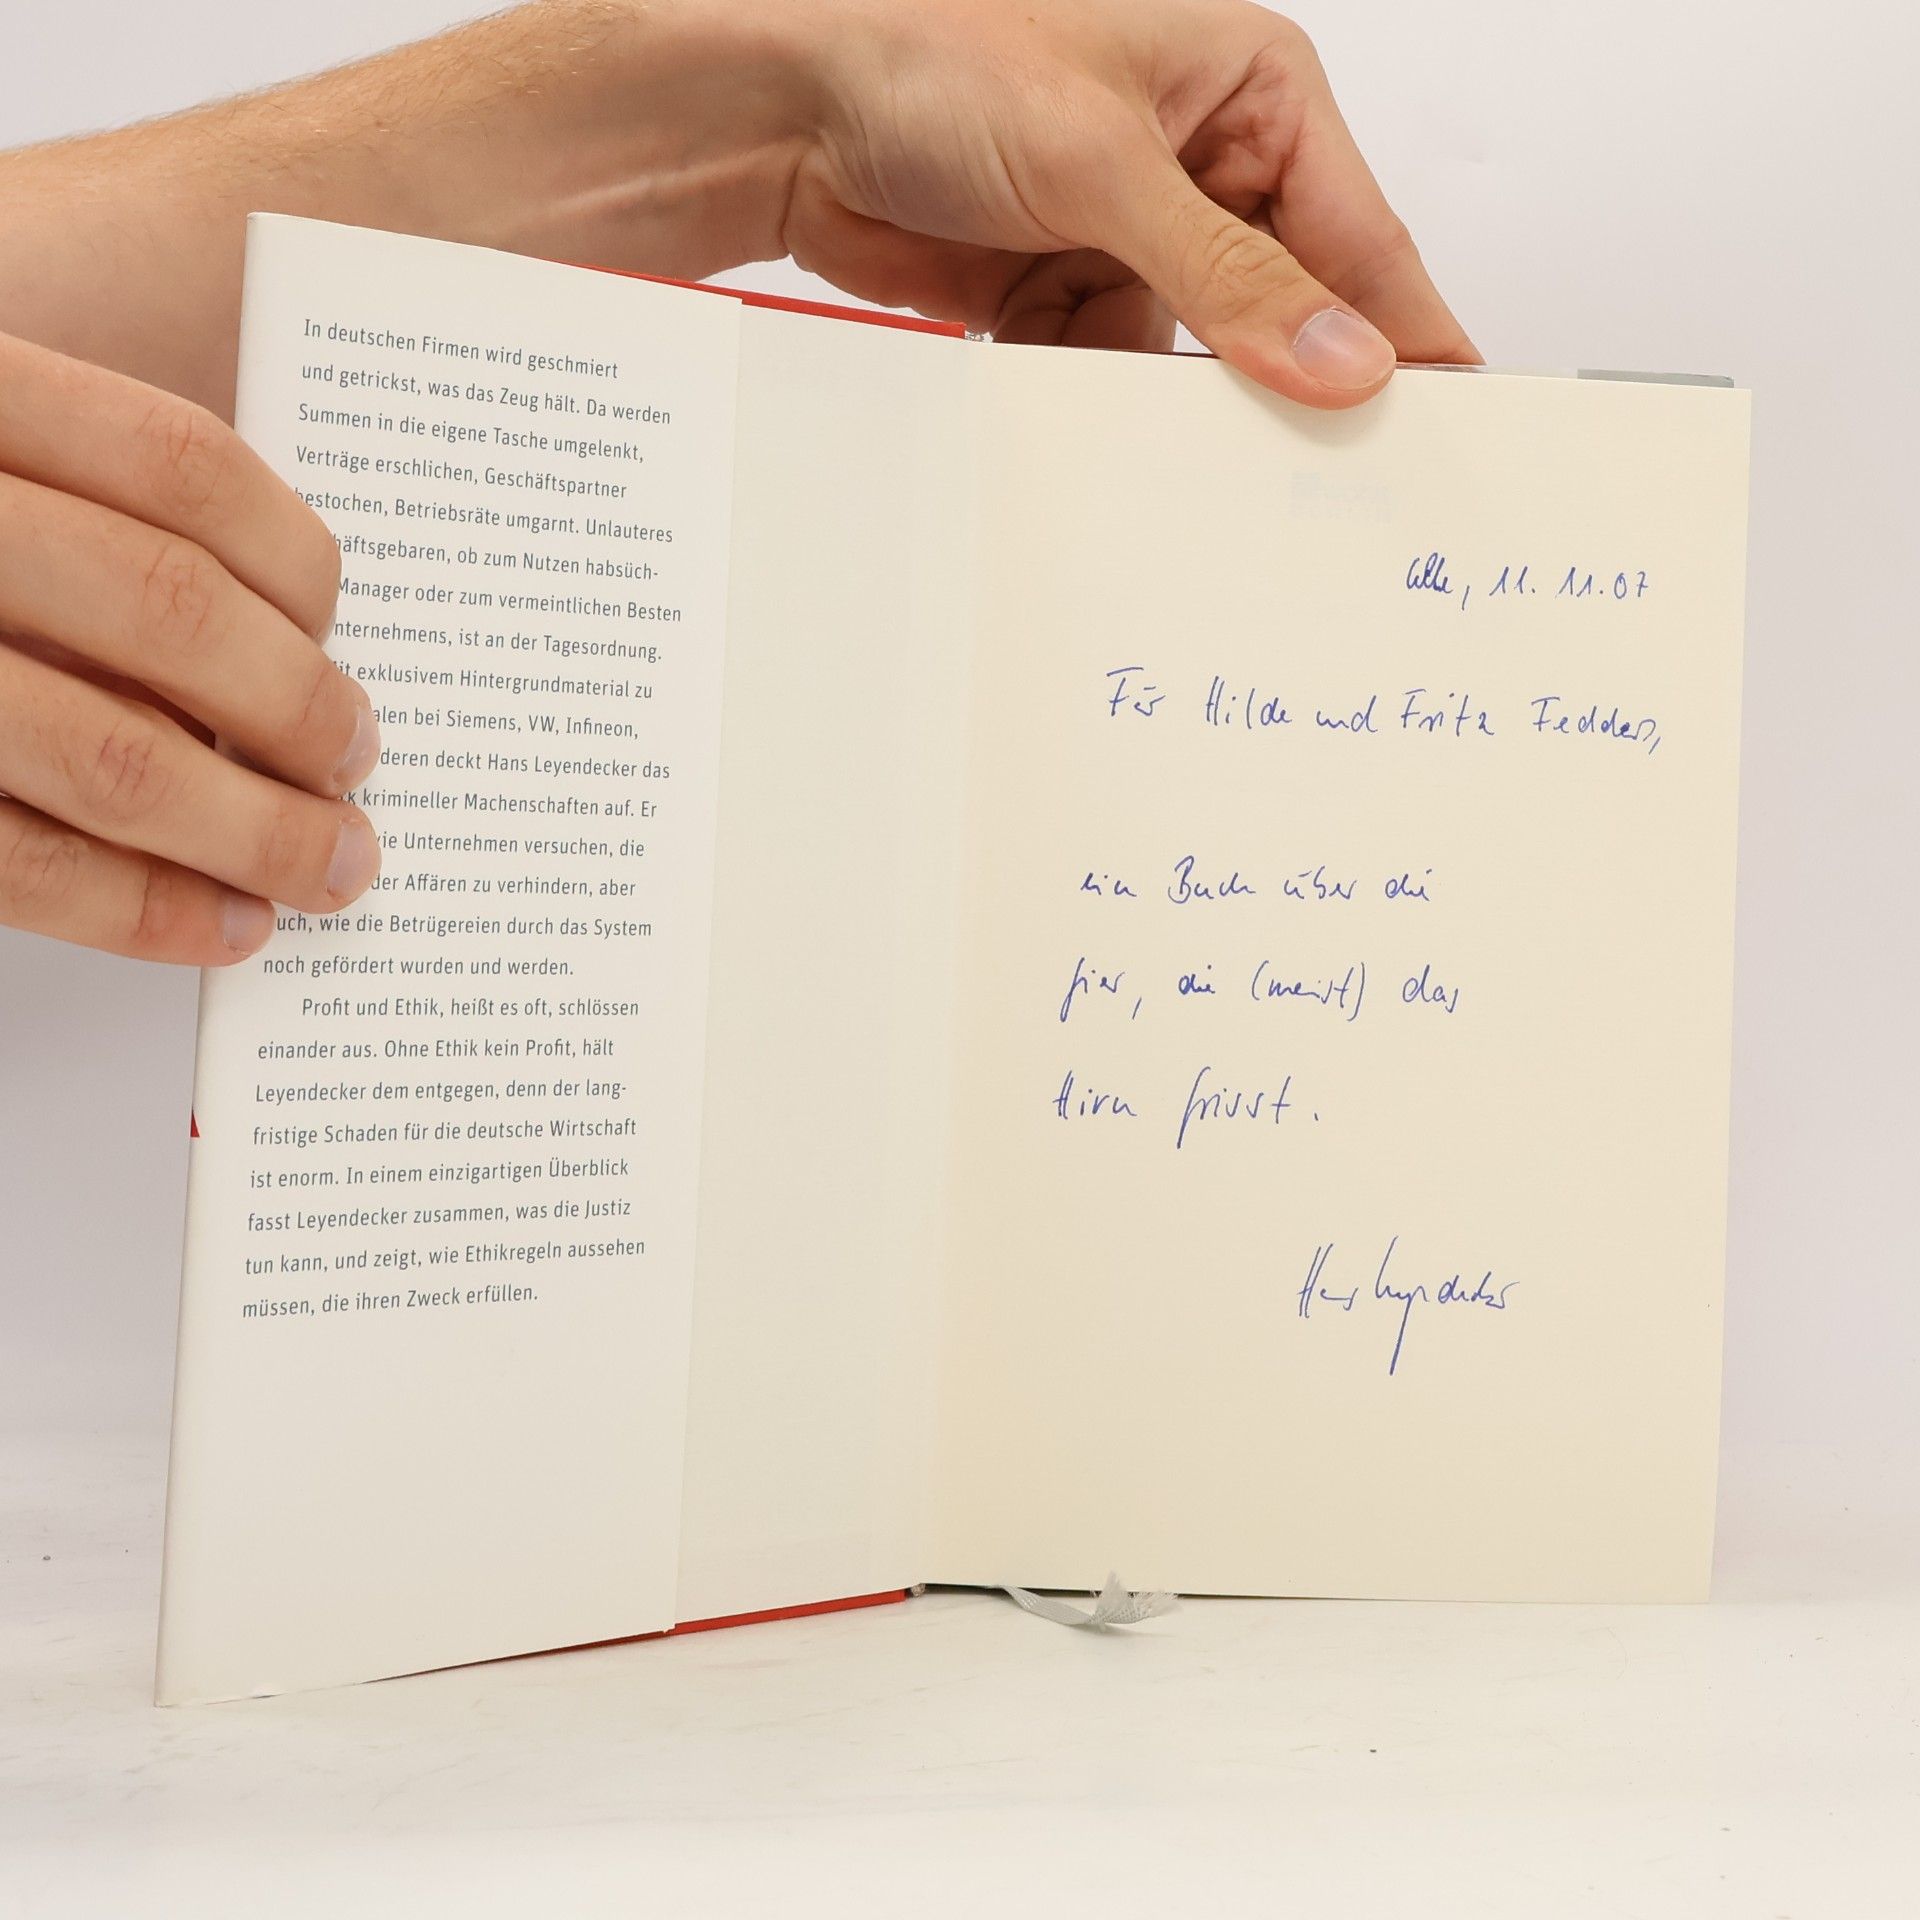 In deutschen Firmen wird geschmiert
und getrickst, was das Zeug hält. Da werden
Summen in die eigene Tasche umgelenkt,
Verträge erschlichen, Geschäftspartner
bestochen, Betriebsräte umgarnt. Unlauteres
häftsgebaren, ob zum Nutzen habsüch-
Manager oder zum vermeintlichen Besten
nternehmens, ist an der Tagesordnung.
it exklusivem Hintergrundmaterial zu
alen bei Siemens, VW, Infineon,
deren deckt Hans Leyendecker das
k krimineller Machenschaften auf. Er
ie Unternehmen versuchen, die
der Affären zu verhindern, aber
uch, wie die Betrügereien durch das System
noch gefördert wurden und werden.
Profit und Ethik, heißt es oft, schlössen
einander aus. Ohne Ethik kein Profit, hält
Leyendecker dem entgegen, denn der lang-
fristige Schaden für die deutsche Wirtschaft
ist enorm. In einem einzigartigen Überblick
fasst Leyendecker zusammen, was die Justiz
tun kann, und zeigt, wie Ethikregeln aussehen
müssen, die ihren Zweck erfüllen.
11. 11. 07
Für Hilde und Fritz Fedders,
ein Buch über die
Gier, die (meist) das
Hirn frisst.
Hans Leyendecker